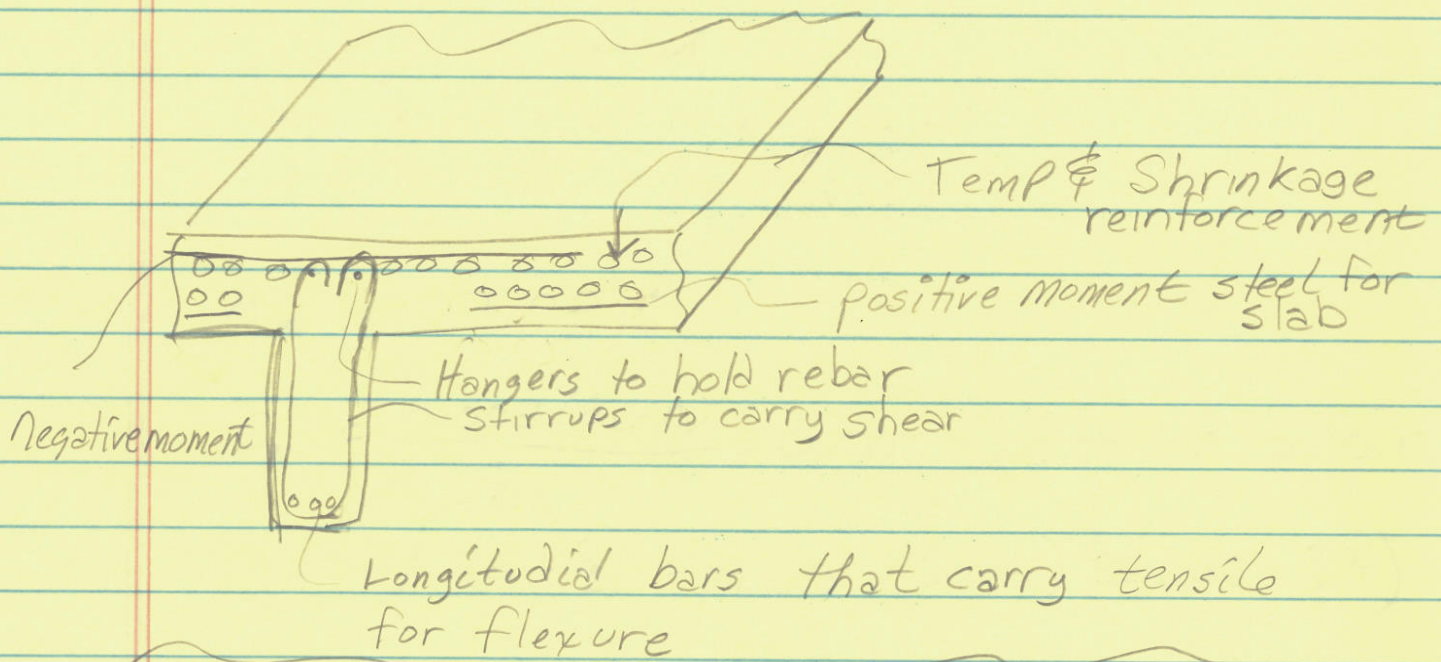 Temp & Shrinkage
reinforcement
positive moment steel for
slab
Hangers to hold rebar
Stirrups to carry shear
negative moment
Longitudial bars that carry tensile
for flexure